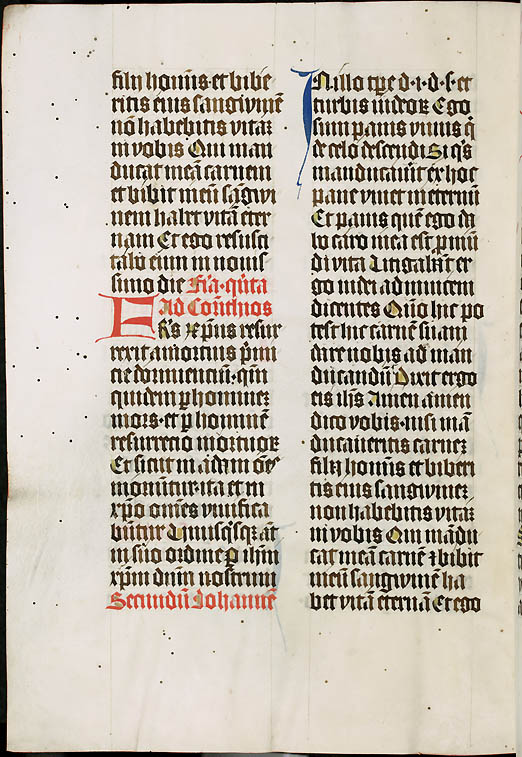 filij hominis et bibe
ritis eius sanguinē
nō habebitis vitaꝫ
in vobis Qui man
ducat meā carnem
et bibit meū sāgwi
nem habet vitā eter
nam Et ego resusci
tabo eum in nouis
simo die Fīa·qui͂ta
Ad Corīthios
Frꝫ xp̄us resur
rexit a mortuis p̄mi
cie dormienciū·qm̄
quidem ꝑ hominez
mors·et ꝑ hominē
resurrectio mortuoꝝ
Et sicut in adam om̄es
moriūtur·ita et in
xp̄o om̄es viuifica
būtur Vnusq̄sqꝫ āt
in suo ordine ꝑ ihm̄
xp̄m dnm̄ nostrum
Secundū Johannē
IN illo tp̄re d·i·d·s·et
turbis iudeoꝝ Ego
sum panis viuus q̄
de celo descendi Si q̄s
manducauīt ex hoc
pane viuet in eternū
Et panis quē ego da
bo caro mea est p̄ mūn
di vita Litigabāt er
go iudei ad inuicem
dicentes Quō hic po
test hic carnē suam
dare nobis ad man
ducandū Dixit ergo
eis ihs̄ Amen amen
dico vobis·nisi mā
ducaueritis carnez
filij hominis et biberi
tis eius sangwinez
non habebitis vitaꝫ
in vobis Qui mādu
cat meā carnē ⁊ bibit
meū sangwinē ha
bet vitā eternā Et ego